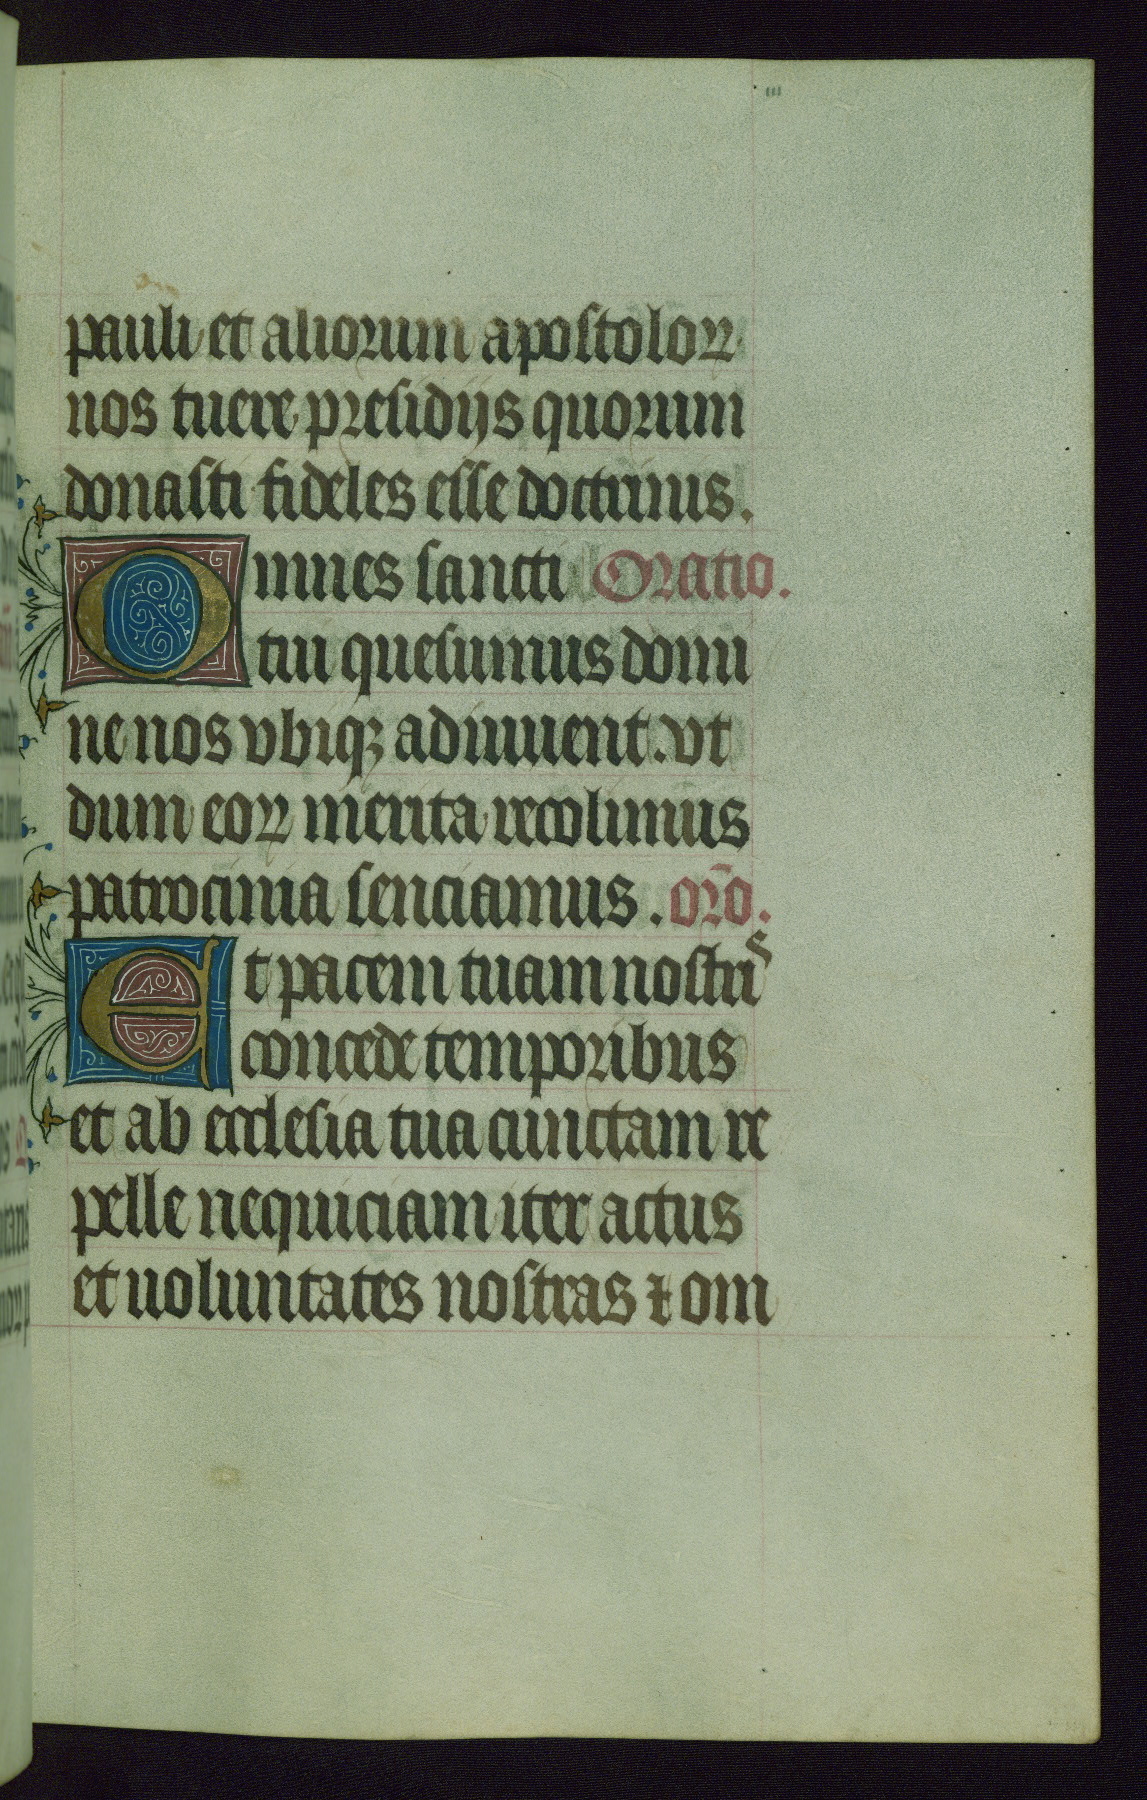 ııı
pauli et aliorum apostoloꝝ
nos tuere presidijs quorum
donasti fideles esse doctrinis.
Omnes sancti Oratio.
tui quesumus domi
ne nos vbiqꝫ adiuuent. vt
dum eoꝝ merita recolimus
patrocinia senciamus. oro̅.
Et pacem tuam nostris
concede temporibus
et ab ecclesia tua cunctam re
pelle nequiciam iter actus
et uoluntates nostras ⁊ om